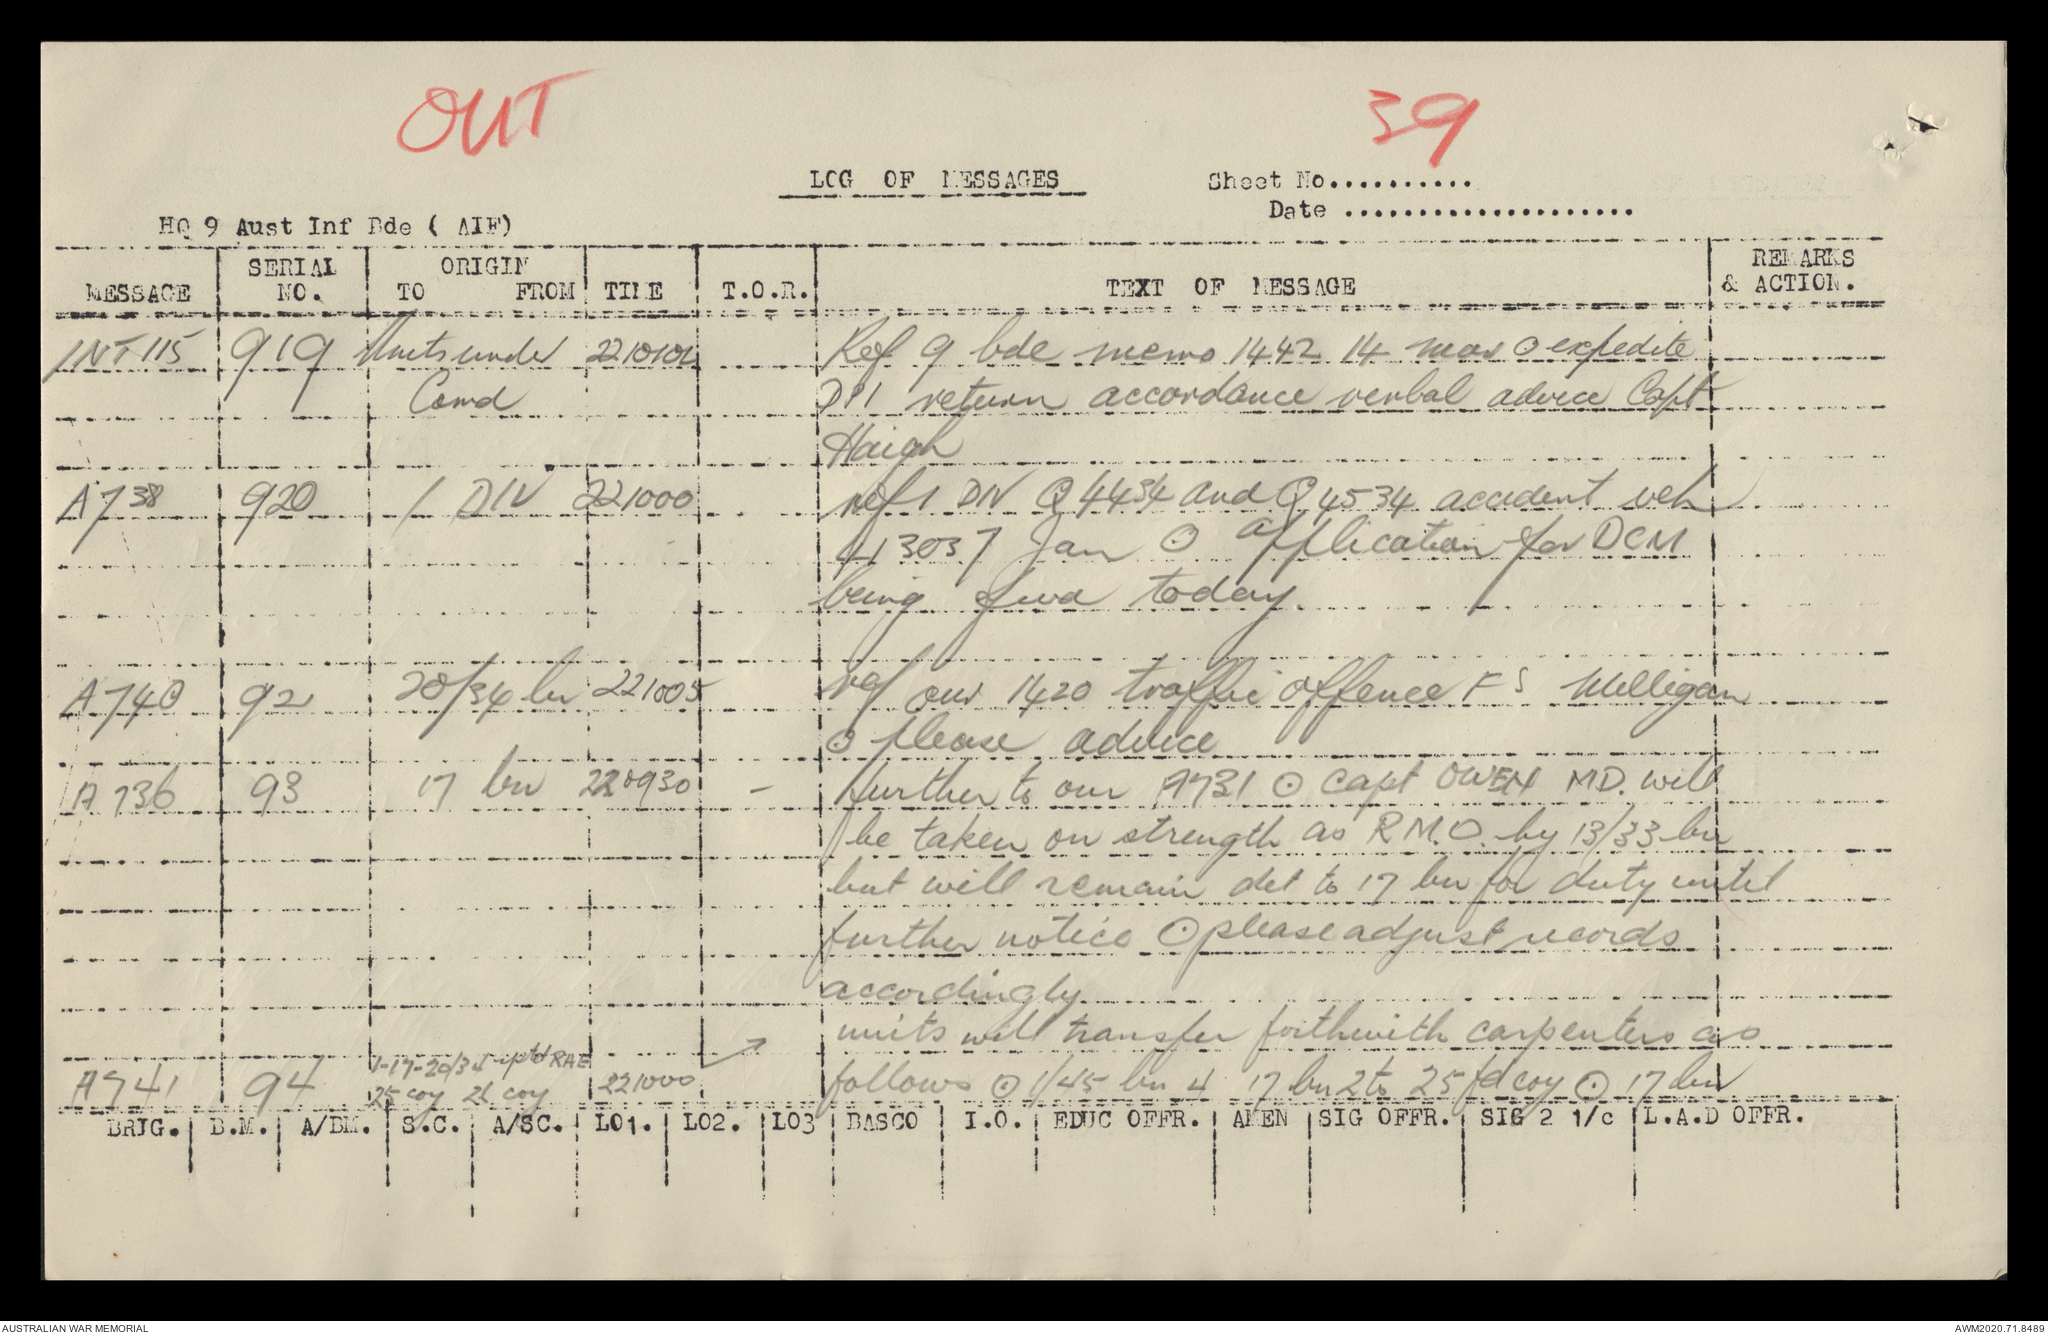 OUT
39
LOG OF MESSAGES
Sheet No...........
Date ....................
HQ 9 Aust Inf Bde ( AIF)
MESSAGE SERIAL NO. ORIGIN TO FROM TIME T.O.R. TEXT OF MESSAGE REMARKS & ACTION.
INT 115 919 Units under 221010 Ref 9 bde memo 1442 14 mar ⊙ expedite
Comd return accordance verbal advice Capt
Haigh
A738 920 1 DIV 221000 ref 1 DIV Q4434 and Q4534 accident veh
7 Jan ⊙ application for DCM
being fwd today
A740 92 20/34 bn 221005 ref our 1420 traffic offence FS Milligan
⊙ please advice
A 736 93 17 bn 220930 - further to our A731 ⊙ Capt OWEN MD. will
be taken on strength as R.M.O. by 13/33 bn
but will remain det to 17 bn for duty until
further notice ⊙ please adjust records
accordingly
units will transfer forthwith carpenters as
A741 94 1-17-20/34 RAE
25 coy 2/ coy 221000 follows ⊙ 1/45 bn 4 17 bn 2 to 25 fd coy ⊙ 17 bn
BRIG. B.M. A/BM. S.C. A/SC. LO1. LO2. LO3 BASCO I.O. EDUC OFFR. AMEN SIG OFFR. SIG 2 1/c L.A.D OFFR.
AUSTRALIAN WAR MEMORIAL
AWM2020.71.8489